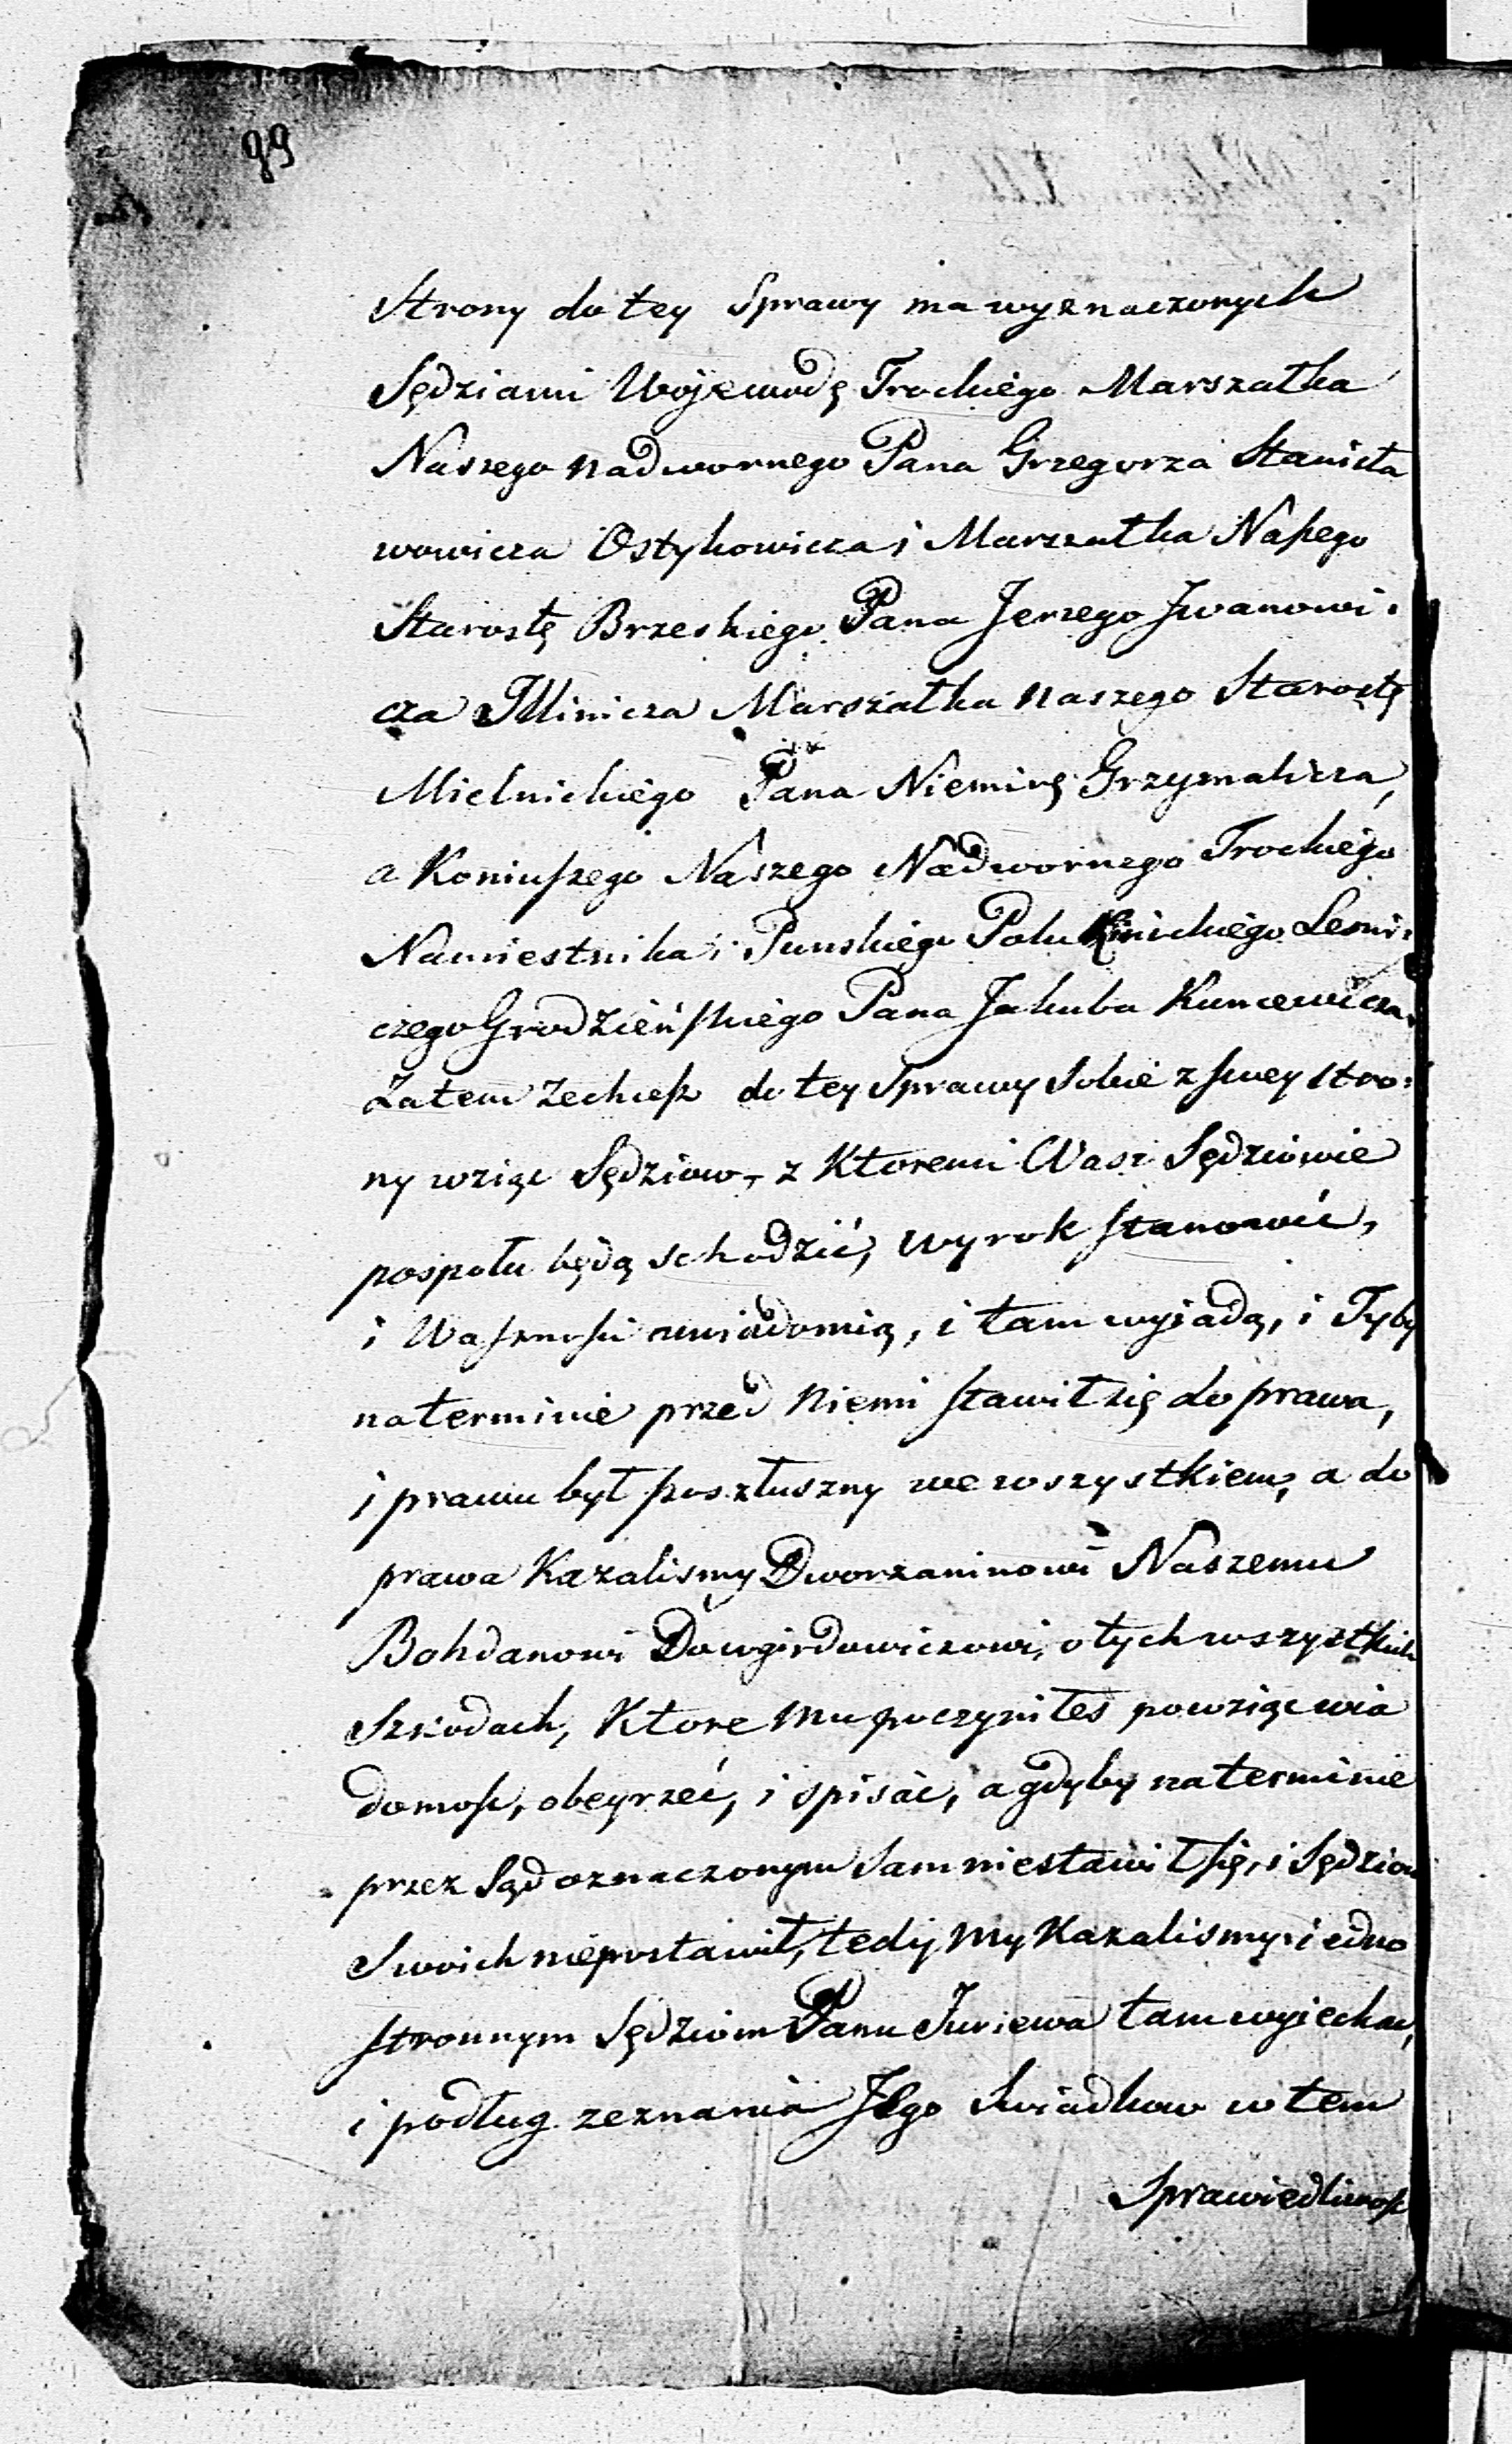 99
Strony do tey Sprawy ma wyznaczonych
Sędziami Wojewodę Trockiego Marszałka
Naszego nadwornego Pana Grzegorza Stanisła
wowicza Ostykowicza i Marszałka Naszego
Starostę Brzeskiego Pana Jerzego Jwanowi:
cza Jllinicza Marszałka naszego Starostę
Mielnickiego Pana Niemirę Grzymalicza,
a Koniuszego Naszego Nadwornego Trockiego
Namiestnika i Punskiego Leśni:
czego Grodzieńskiego Pana Jakuba Kuncewicza.
Zatem Zechcesz do tey Sprawy Sobie z swey stro:
ny wziąc Sędziow, z Ktoremi Nasi Sędziowie
pospołu będą schodzić, wyrok stanowić,
i Waszmości uwiadomią, i tam wyjadą, i Tyby
na terminie przed Niemi stawił się do prawa,
i prawu był poszłuszny we wszystkiem, a do
prawa Kazalismy Dworzaninowi Naszemu
Bohdanowi Dowgirdowiczowi, o tych wszystkich
Szkodach, Ktore mu poczyniłes powziąc wia
domość, obeyrzeć, i spisać, a gdyby na terminie
przez Sąd oznaczonym Sam niestawił się, i Sędziow
Swoich niepostawił, tedy My Kazalismy i edno
stronnym Sędziom Panu Juriewa tam wyiechac,
i podług zeznania Jego Swiadkow w tem
Sprawiedliwość